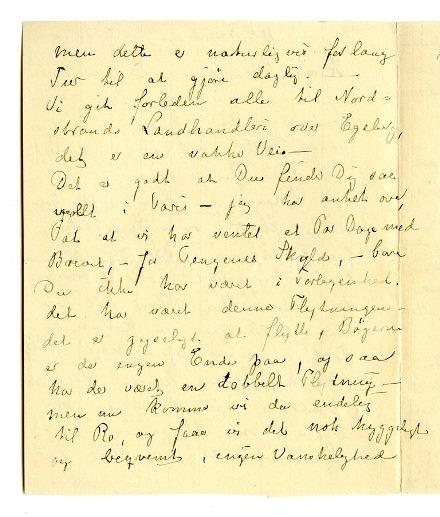 men dette er naturligvis for lang
Tur til at gjøre daglig. —
Vi gik forleden alle til Nord=
strands Landhandleri over Egeberg,
det er en vakker Vei. —
Det er godt at Du finder Dig saa
vel i Paris — jeg har ænket over,
at vi har ventet et Par Dage med
Brevet, — for Pengenes Skyld, — bare
Du ikke har været i Forlegenhed.
det har været denne Flytningen —
det er gyseligt at flytte, Bøgerne
er der ingen Ende paa, og saa
har det været en dobbelt Flytning —
men nu kommer vi da endelig
til Ro, og faar vi det nok hyggeligt
og beqvemt, ingen Vanskelighed